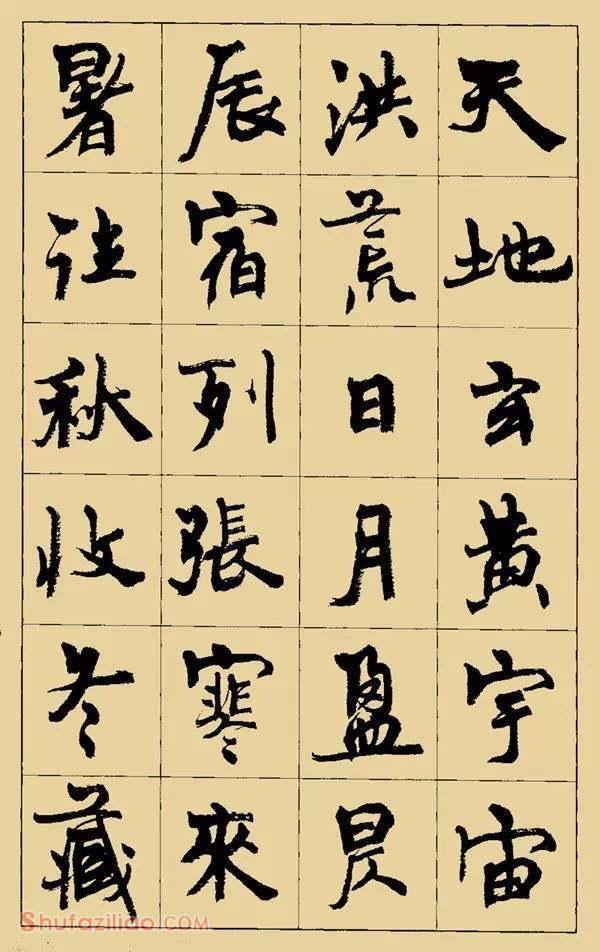 天地玄黄宇宙
洪荒日月盈昃
辰宿列張寒來
暑往秋收冬藏
Shufaziliao.com